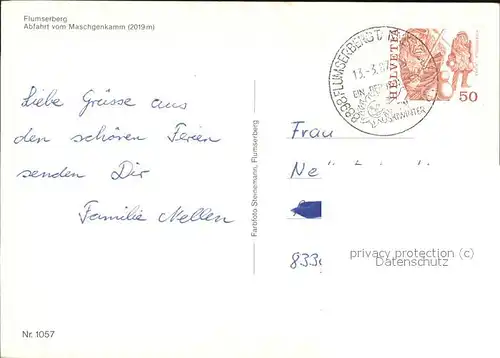 Flumserberg
Abfahrt vom Maschgenkamm (2019 m)
Liebe Grüsse aus
den schönen Ferien
senden Dir
Familie Mellen
Farbfoto Steinemann, Flumserberg
8898 FLUMSERBERG
13.-3.87
HELVETIA
50
Frau
833
privacy protection (c)
Datenschutz
Nr. 1057